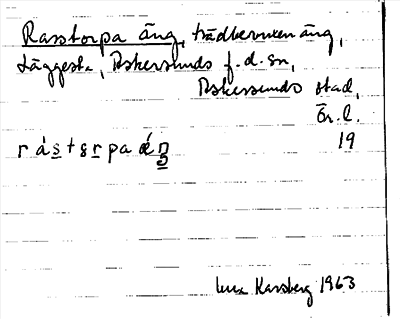 Rasstorpa äng, trädbevuxen äng,
Läggesta, Askersunds f.d. sn,
Askersunds stad,
Ör. l.
rástsrpa äŋ 19
Karsberg 1963